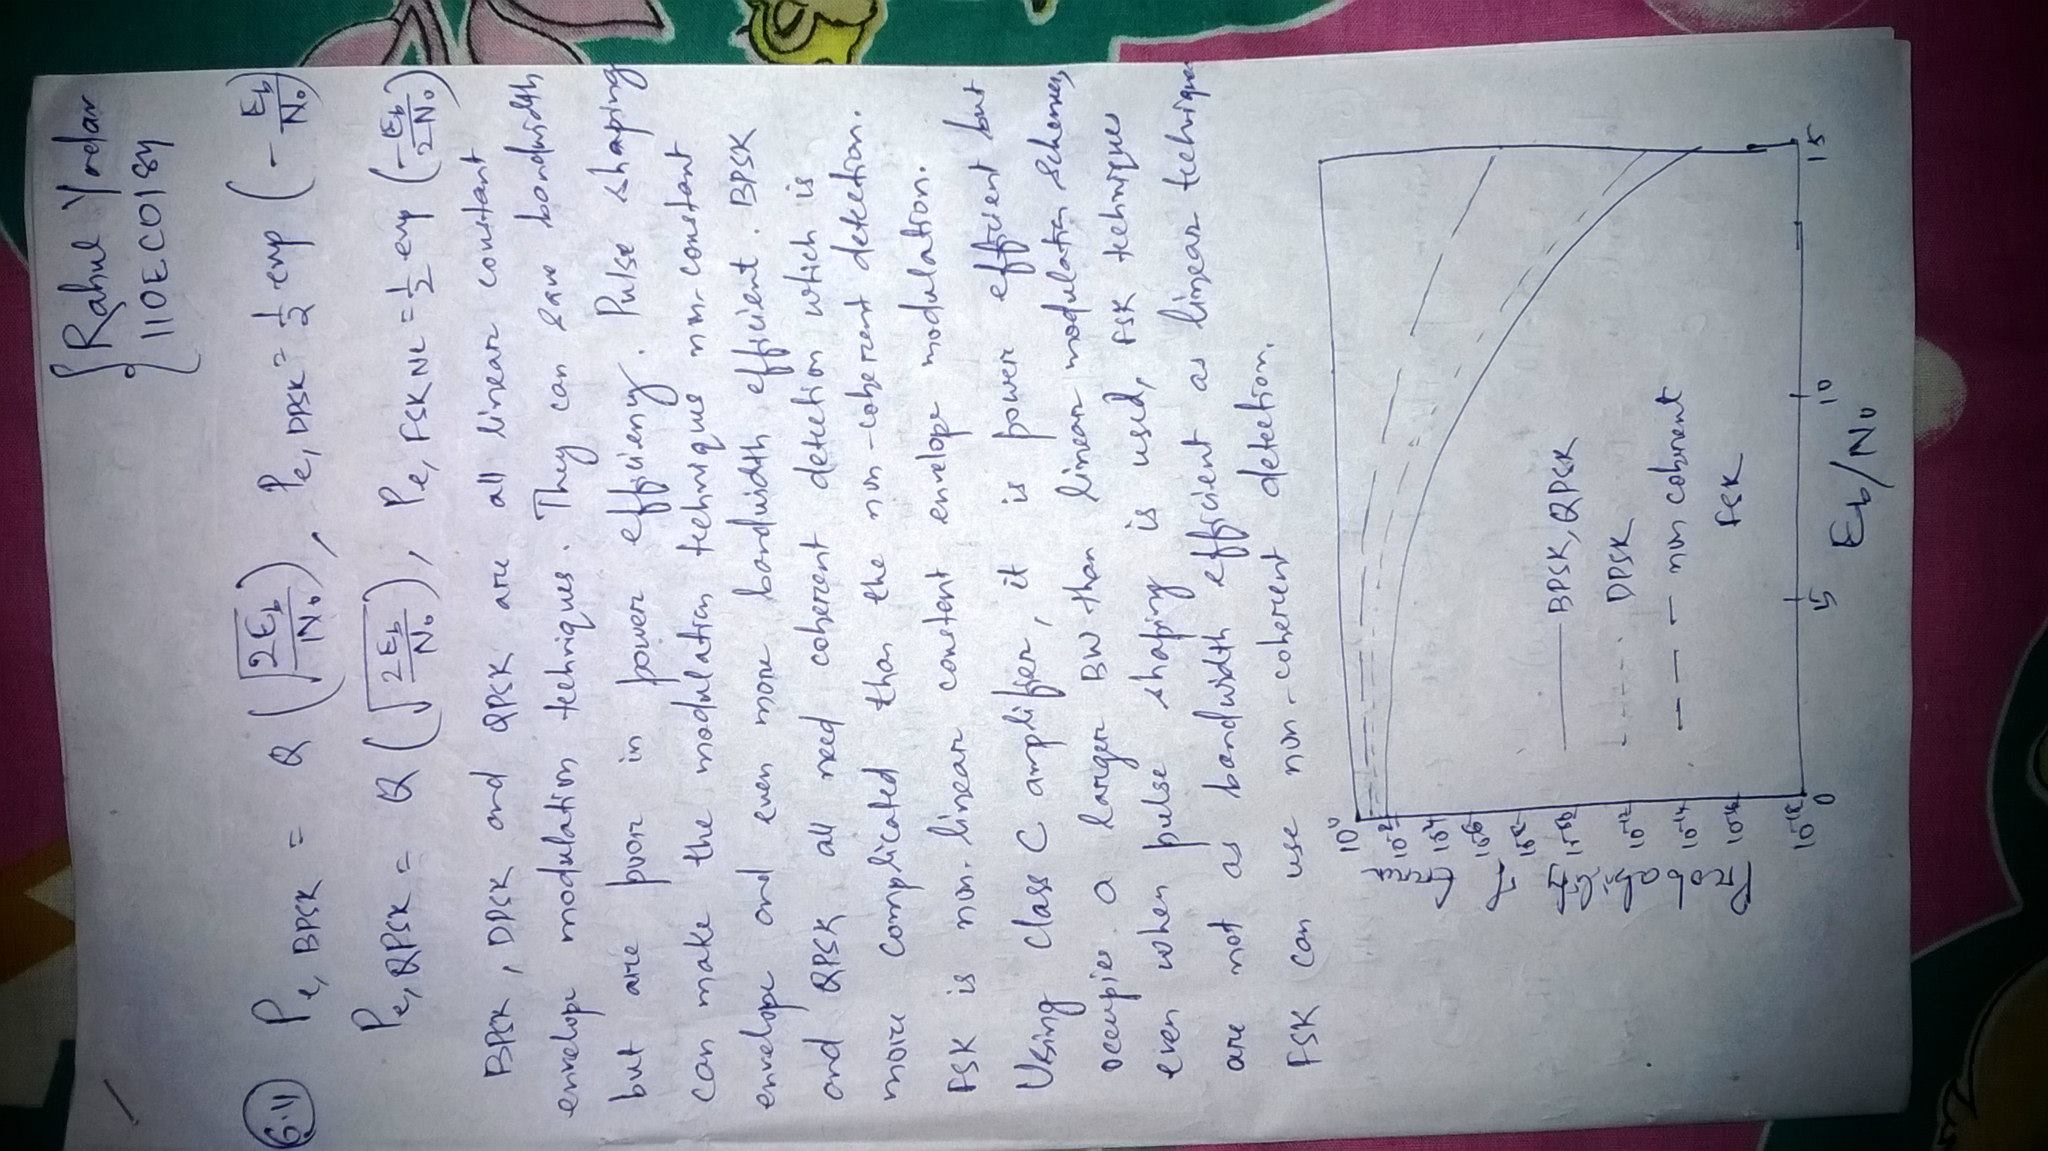 Rahul Yadav
110EC0184
6.11 Pe, BPSK = Q(√(2Eb/N0)), Pe, DPSK = 1/2 exp(-Eb/N0)
Pe, QPSK = Q(√(2Eb/N0)), Pe, FSK NC = 1/2 exp(-Eb/2N0)
BPSK, DPSK and QPSK are all linear constant
envelope modulation techniques. They can save bandwidth
but are poor in power efficieny. Pulse shaping
can make the modulation techniques non-constant
envelope and even more bandwidth efficient. BPSK
and QPSK all need coherent detection which is
more complicated than the non-coherent detection.
FSK is non-linear constant envelope modulation.
Using class C amplifier, it is power efficient but
occupies a larger BW than linear modulation schemes,
even when pulse shaping is used, FSK techniques
are not as bandwidth efficient as linear techniques
FSK can use non-coherent detection.
10^0
10^-2
10^-4
10^-6
10^-8
10^-10
10^-12
10^-14
10^-16
10^-18
BPSK, QPSK
DPSK
non coherent
FSK
0 5 10 15
Eb/N0